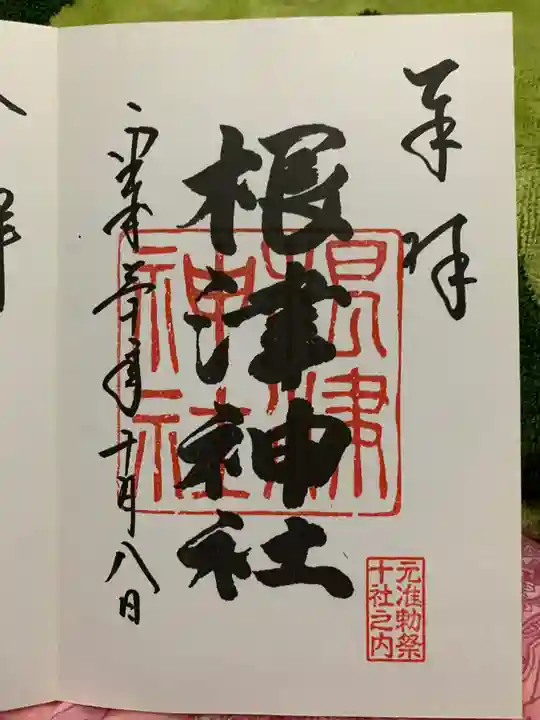 奉拝
根津神社
根津神社
平成三十年十月八日
元准勅祭
十社之内
拝